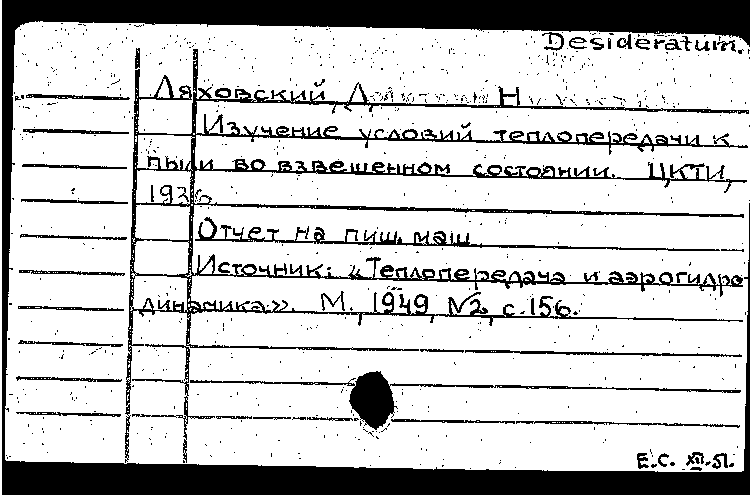 Desideratum.
Ляховский, Д Н
Изучение условий теплопередачи к
пыли во взвешенном состоянии. ЦКТИ,
1936
Отчет на пиш. маш.
Источник: «Теплопередача и аэрогидро-
динамика». М., 1949, №2, с. 156.
Е.С. XII.51.